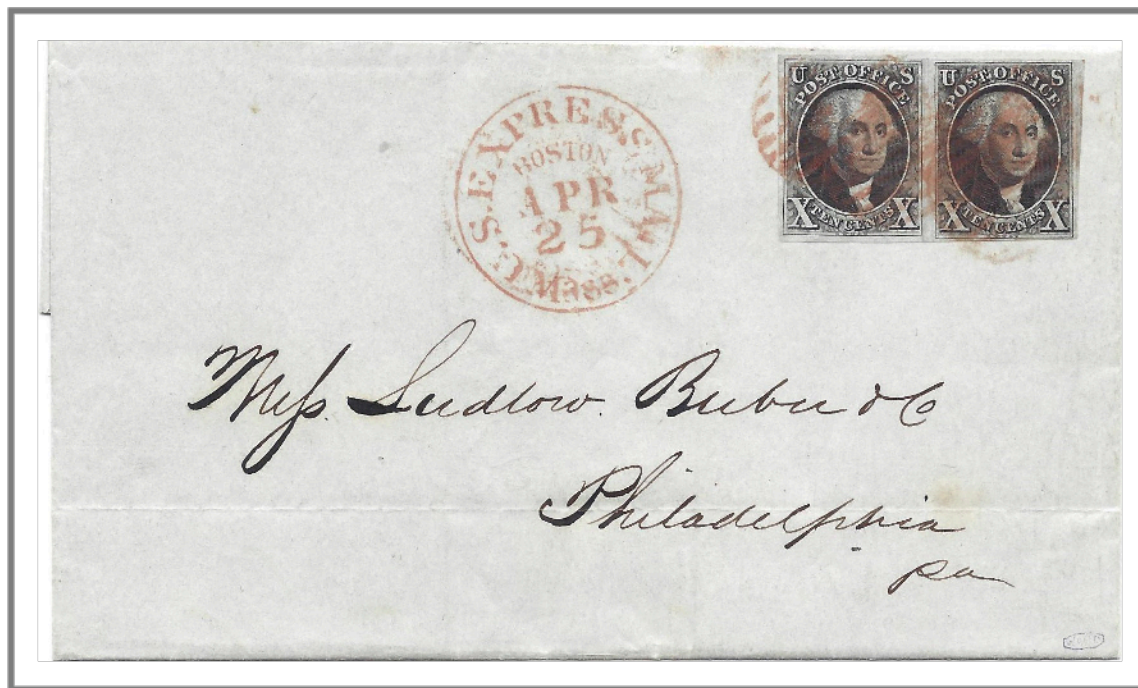 U.S. EXPRESS MAIL.
BOSTON
APR
25
Mass.
U S
POST OFFICE
X TEN CENTS X
U S
POST OFFICE
X TEN CENTS X
Mess. Ludlow. Beebee & Co
Philadelphia
Pa